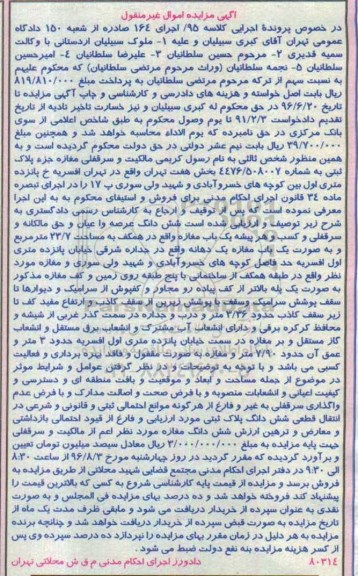 آگهی مزایده اموال غیرمنقول
در خصوص پرونده اجرایی کلاسه ۹۵/ اجرای ۱۶۴ صادره از شعبه ۱۵۰ دادگاه
عمومی تهران آقای کبری سبیلیان و علیه ۱- ملوک سبیلیان اردستانی با وکالت
سمیه قدیری ۲- مرحوم حسین سلطانیان ۳- علیرضا سلطانیان ۴- امیرحسین
سلطانیان ۵- نجمه سلطانیان (وراث مرحوم مرتضی سلطانیان) که محکوم علیهم
به نسبت سهم از ترکه مرحوم مرتضی سلطانیان به پرداخت مبلغ ۸۱۹/۸۱۰/۰۰۰
ریال بابت اصل خواسته و هزینه های دادرسی و کارشناسی و چاپ آگهی مزایده تا
تاریخ ۹۶/۶/۲۰ در حق محکوم له کبری سبیلیان و نیز خسارت تاخیر تادیه از تاریخ
تقدیم دادخواست ۹۱/۲/۳ تا یوم وصول محکوم به طبق شاخص اعلامی از سوی
بانک مرکزی در حق نامبرده که یوم الاداء محاسبه خواهد شد و همچنین مبلغ
۳۹/۷۰۰/۰۰۰ ریال بابت نیم عشر دولتی در حق دولت محکوم گردیده است و به
همین منظور شخص ثالثی به نام رسول کریمی مالکیت و سرقفلی مغازه جزء پلاک
ثبتی به شماره ۴۴۷۶/۵۰۸۰۰۷ بخش هفت تهران واقع در تهران افسریه خ پانزده
متری اول بین کوچه های خسروآبادی و شهید ولی سوری پ ۱۷ را در اجرای تبصره
ماده ۳۴ قانون اجرای احکام مدنی برای فروش و استیفای محکوم به به این اجرا
معرفی نموده است که پس از توقیف و ارجاع به کارشناس رسمی دادگستری به
شرح زیر توصیف و ارزیابی شده است شش دانگ عرصه و اعیان و حق مالکانه و
سرقفلی و کسب و کار پیشه یک باب مغازه واقع در همکف به مساحت ۲۳/۷ مترمربع
به صورت یک باب مغازه یک دهانه واقع در جداره شرقی خیابان پانزده متری
اول افسریه حد فاصل کوچه های خسروآبادی و شهید ولی سوری و مغازه مورد
نظر واقع در طبقه همکف از ساختمانی با پنج طبقه روی زمین و کف مغازه مذکور
به صورت یک پله بالاتر از کف پیاده رو مجاور و کفپوش از سرامیک و دیوارها تا
سقف پوشش سرامیک و سقف با پوشش زیرین از سقف کاذب و ارتفاع مفید کف تا
زیر سقف کاذب حدود ۳/۳۶ متر و درب و جداره در سمت گذر غربی از شیشه و
محافظ کرکره برقی و دارای انشعاب آب مشترک و انشعاب برق مستقل و انشعاب
گاز مستقل و بر مغازه در سمت خیابان پانزده متری اول افسریه حدود ۳ متر و
عمق آن حدود ۷/۹۰ متر و مغازه به صورت مفقود و فاقد بهره برداری و فعالیت
کسبی می باشد و با توجه به توضیحات و در نظر گرفتن عوامل و شرایط موثر
در موضوع از جمله مساحت و ابعاد و موقعیت و بافت منطقه ای و دسترسی و
کیفیت اعیانی و انشعابات منصوبه و با فرض صحت و اصالت مدارک و با فرض عدم
واگذاری سرقفلی به غیر و فارغ از هرگونه موانع احتمالی ثبتی و قانونی و شرعی در
انتقال قطعی شش دانگ پلاک ثبتی مورد ارزیابی و فارغ از قیود احتمالی بازداشتی
و معارض و ترهین ارزش شش دانگ مغازه مورد نظر اعم از مالکیت و سرقفلی
جهت پایه مزایده به مبلغ ۳/۰۰۰/۰۰۰/۰۰۰ ریال معادل سیصد میلیون تومان تعیین
و برآورد گردیده که مقرر گردید در روز چهارشنبه مورخ ۹۶/۸/۳ از ساعت ۸:۳۰
الی ۹:۳۰ در دفتر اجرای احکام مدنی مجتمع قضایی شهید محلاتی از طریق مزایده به
فروش برسد و مزایده از قیمت پایه کارشناسی شروع به کسی که بالاترین قیمت را
پیشنهاد کند فروخته خواهد شد و ده درصد بهای مزایده فی المجلس و به صورت
نقدی به عنوان سپرده از خریدار دریافت می شود و مابقی ظرف مدت یک ماه از
تاریخ مزایده به صورت قبض سپرده از خریدار دریافت خواهد شد و چنانچه برنده
مزایده به هر دلیل در زمان مقرر بهای مزایده را نپردازد ده درصد سپرده وی پس
از کسر هزینه مزایده بنه نفع دولت ضبط می شود.
۸۰۳۱۴ دادورز اجرای احکام مدنی م ق ش محلاتی تهران